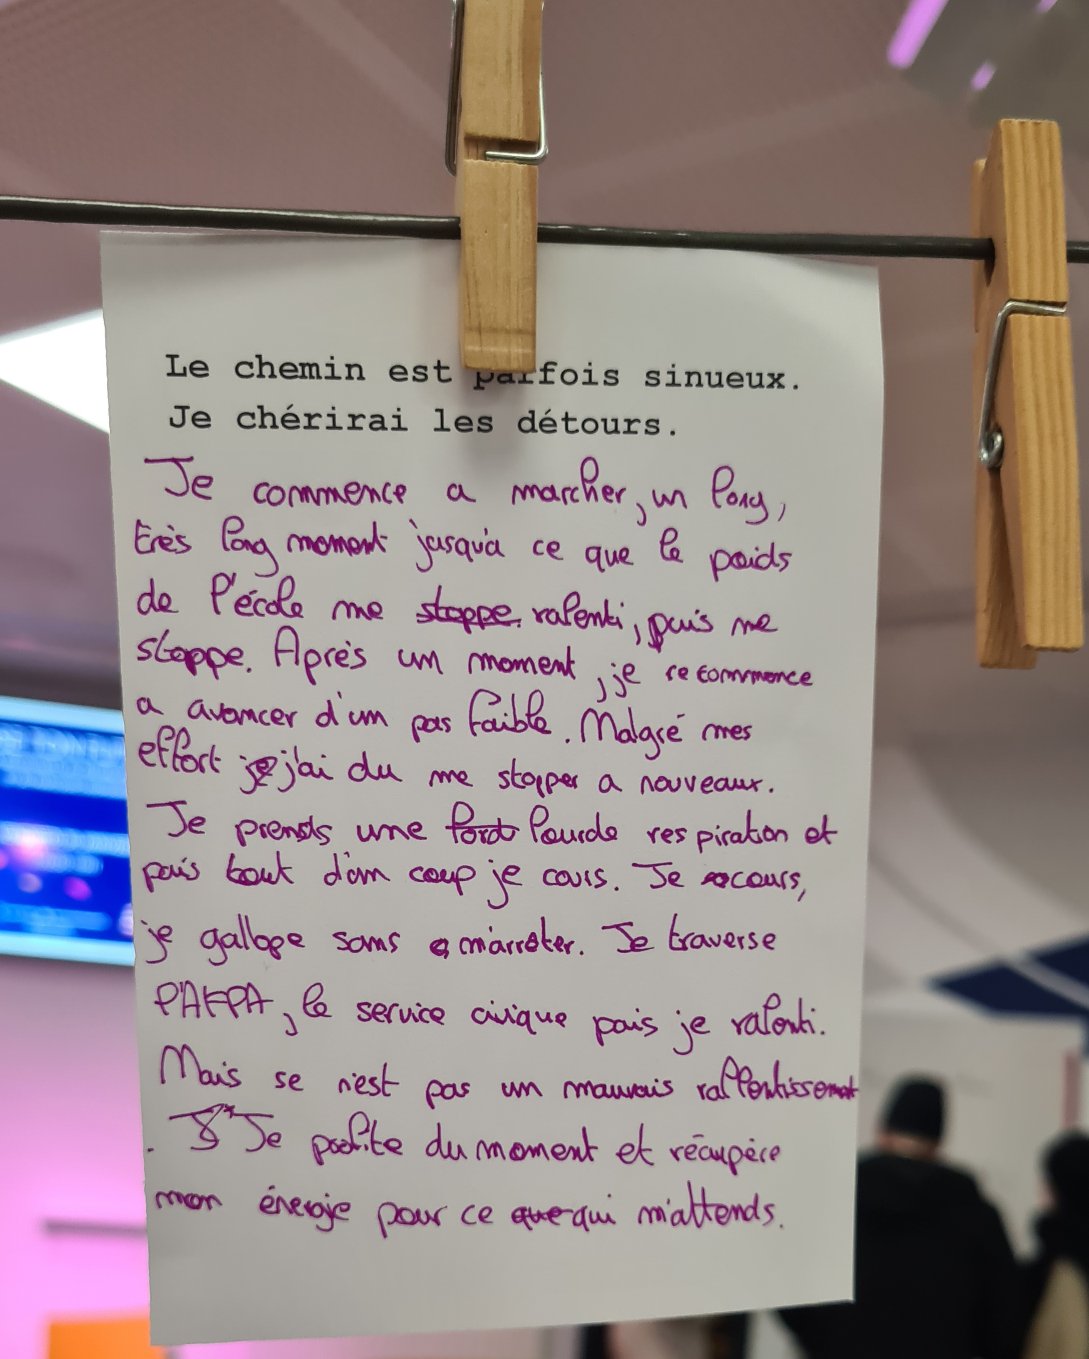 Le chemin est parfois sinueux.
Je chérirai les détours.
Je commence a marcher, un long,
très long moment jusqu'a ce que le poids
de l'école me stoppe. ralenti, puis me
stoppe. Après un moment, je recommence
a avancer d'un pas faible. Malgré mes
effort je j'ai du me stopper a nouveaux.
Je prends une lourde respiration et
puis tout d'un coup je cours. Je cours,
je gallope sans m'arrêter. Je traverse
l'AFPA, le service civique puis je ralenti.
Mais se n'est pas un mauvais rallentissement
. Je profite du moment et récupère
mon énergie pour ce que qui m'attends.